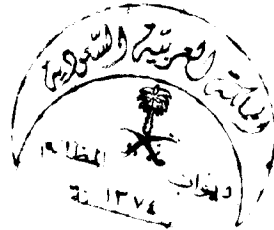 المملكة العربية السعودية
ديوان المظالم
سنة ١٣٧٤